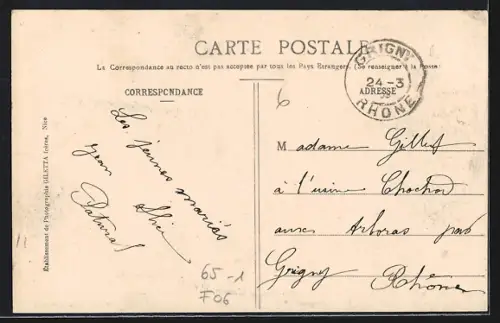 CARTE POSTALE
La Correspondance au recto n'est pas acceptée par tous les Pays Étrangers. (Se renseigner à la Poste)
CORRESPONDANCE
ADRESSE
GRIGNY
24-3
RHONE
6
Les jeunes mariés
Jean
Natural
Madame Gillet
à l'usine Chochod
aux Arboras par
Grigny Rhône
65-1
F06
Etablissement de Photographie GILETTA frères, Nice